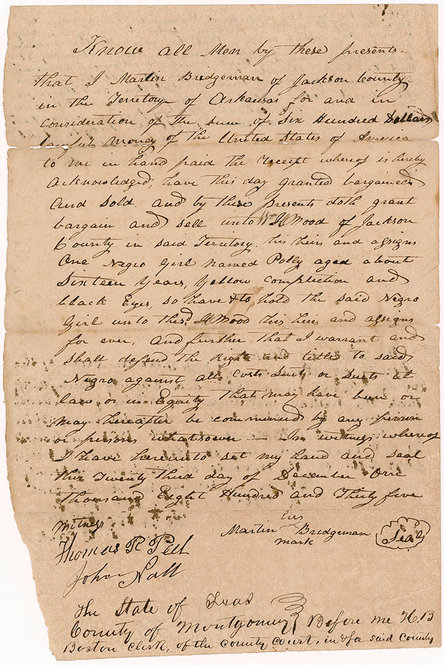 Know all Men by these presents
that I Martin Bridgeman of Jackson County
in the Territory of Arkansas for and in
consideration of the sum of Six Hundred Dollars
lawful money of the United States of America
to me in hand paid the receipt whereof is hereby
acknowledged, have this day granted bargained
and sold and by these presents doth grant
bargain and sell unto Wm H Wood of Jackson
County in said Territory his heirs and assigns
One Negro Girl named Polly aged about
Sixteen Years, Yellow complection and
black Eyes, to have & to hold the said Negro
Girl unto the sd H Wood his heirs and assigns
for ever, and further that I warrant and
shall defend the Right and title to said
Negro against all Costs Suits or Suits at
law or in Equity that may have been or
may hereafter be commenced by any person
or persons whatsoever In witness whereof
I have hereunto set my hand and seal
this Twenty third day of December One
thousand Eight Hundred and Thirty five
Witness his
Martin Bridgeman Seal
mark
Thomas R Pell
John Nall
The State of Texas
County of Montgomery Before me H.B
Boston Clerk, of the County Court, in & for said County